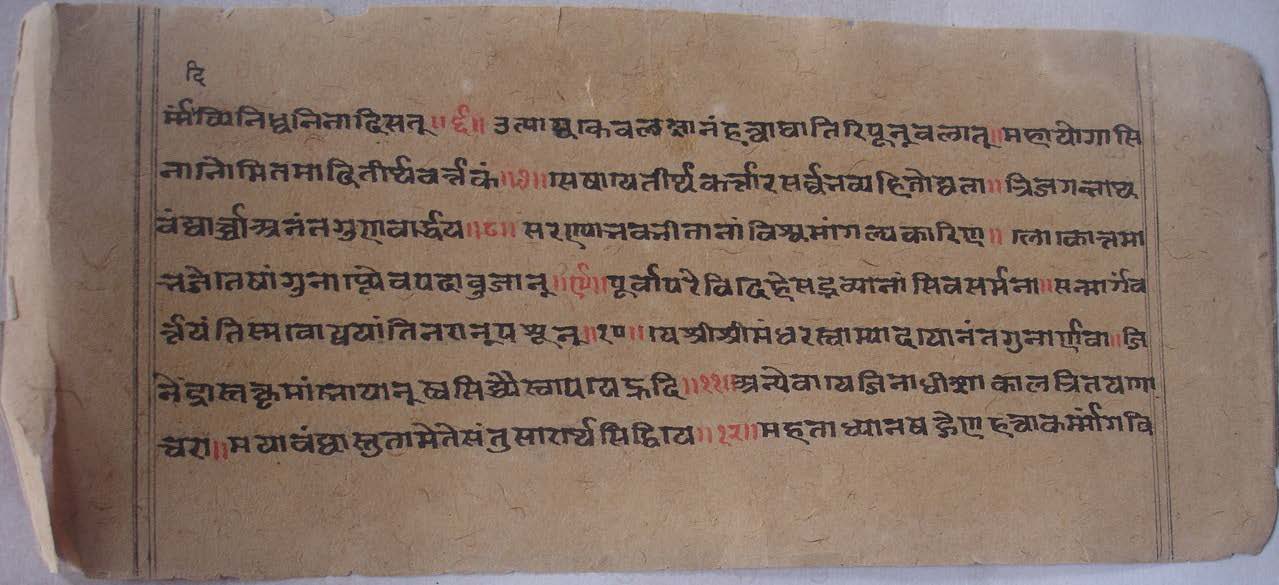 दि
र्म्मव्यिनिध्वनितादिसत् ॥६॥ उत्पाद्याकेवलज्ञानंहत्वाघातिरिपून्वलात् ॥ महायोगासि
नानोमितमादितीर्थवर्त्तकं ॥७॥ ासेषायेतीर्थकर्त्तारसर्व्वनव्यहितोद्यता ॥ त्रिजगन्नाथ
वंद्यार्च्चाअनंतगुणवार्द्धय ॥८॥ सरणेानवनीतानांविश्वमांगल्यकारिण ॥ लोाकोत्तमा
नजेोतेषांगुनाप्त्येवपदावुजान् ॥९॥ पूर्वापरेविादिहेसद्रव्यानांसिवसर्मना ॥ सन्मार्गव
र्त्तयंतिस्मवाोद्ययांतिनरान्पश्रून् ॥१०॥ येश्रीश्रीमंधरस्वाम्यादायानंतगुनार्णवा ॥ जि
नेंद्रास्तत्क्रमांन्नायान्स्वसिध्यैस्वापयेहृदि ॥११॥ अन्येवायेजिनाधीशाकालत्रितयगो
चरा ॥ मयावंद्यास्तुतामेतेसंतुसारार्थसिद्धिये ॥१२॥ महताध्यानषड्गेणहत्वाकर्म्मागवि